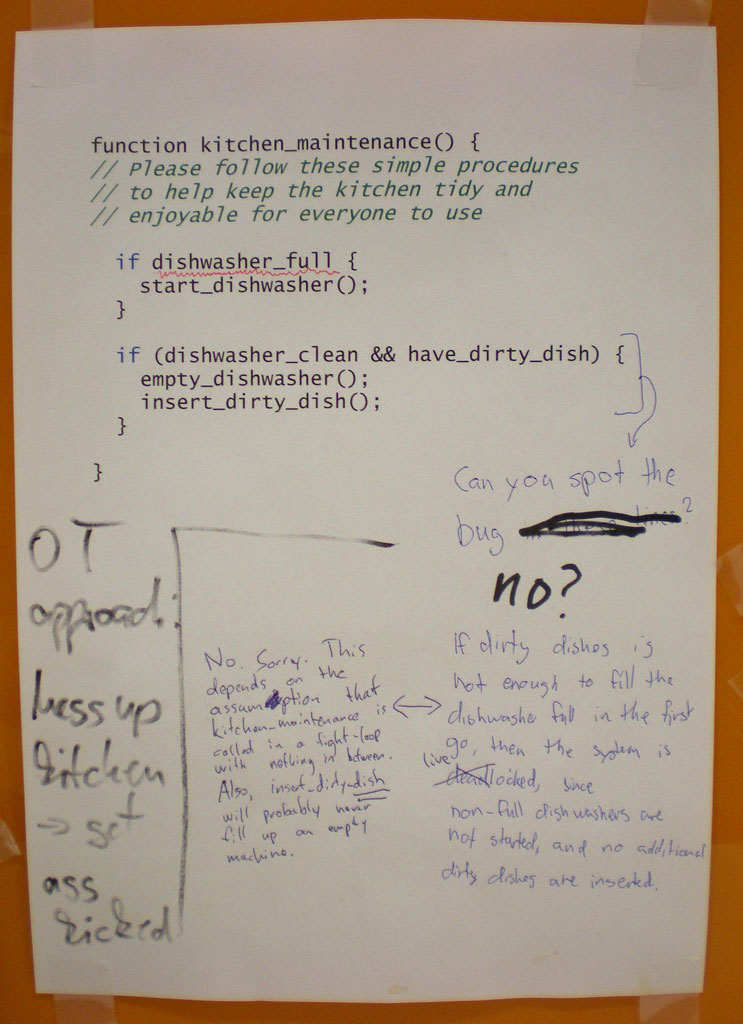 function kitchen_maintenance() {
// Please follow these simple procedures
// to help keep the kitchen tidy and
// enjoyable for everyone to use
if dishwasher_full {
start_dishwasher();
}
if (dishwasher_clean && have_dirty_dish) {
empty_dishwasher();
insert_dirty_dish();
}
}
Can you spot the
bug ?
no?
If dirty dishes is
not enough to fill the
dishwasher full in the first
go, then the system is
livelocked, since
non-full dishwashers are
not started, and no additional
dirty dishes are inserted.
No. Sorry. This
depends on the
assumption that
kitchen_maintenance is
called in a tight-loop
with nothing in between.
Also, insert_dirty_dish
will probably never
fill up an empty
machine.
OT
approach:
mess up
kitchen
→ get
ass
kicked